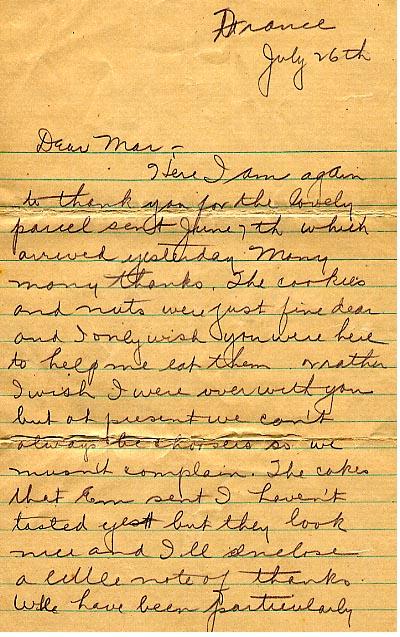 France
July 26th
Dear Mar:-
Here I am again
to thank you for the lovely
parcel sent June 7th which
arrived yesterday Many
many thanks. The cookies
and nuts were just fine dear
and I only wish you were here
to help me eat them or rather
I wish I were over with you
but at present we can't
always be choosers so we
musn't complain. The cakes
that Em sent I haven't
tasted yet but they look
nice and I'll enclose
a little note of thanks.
We have been particularly